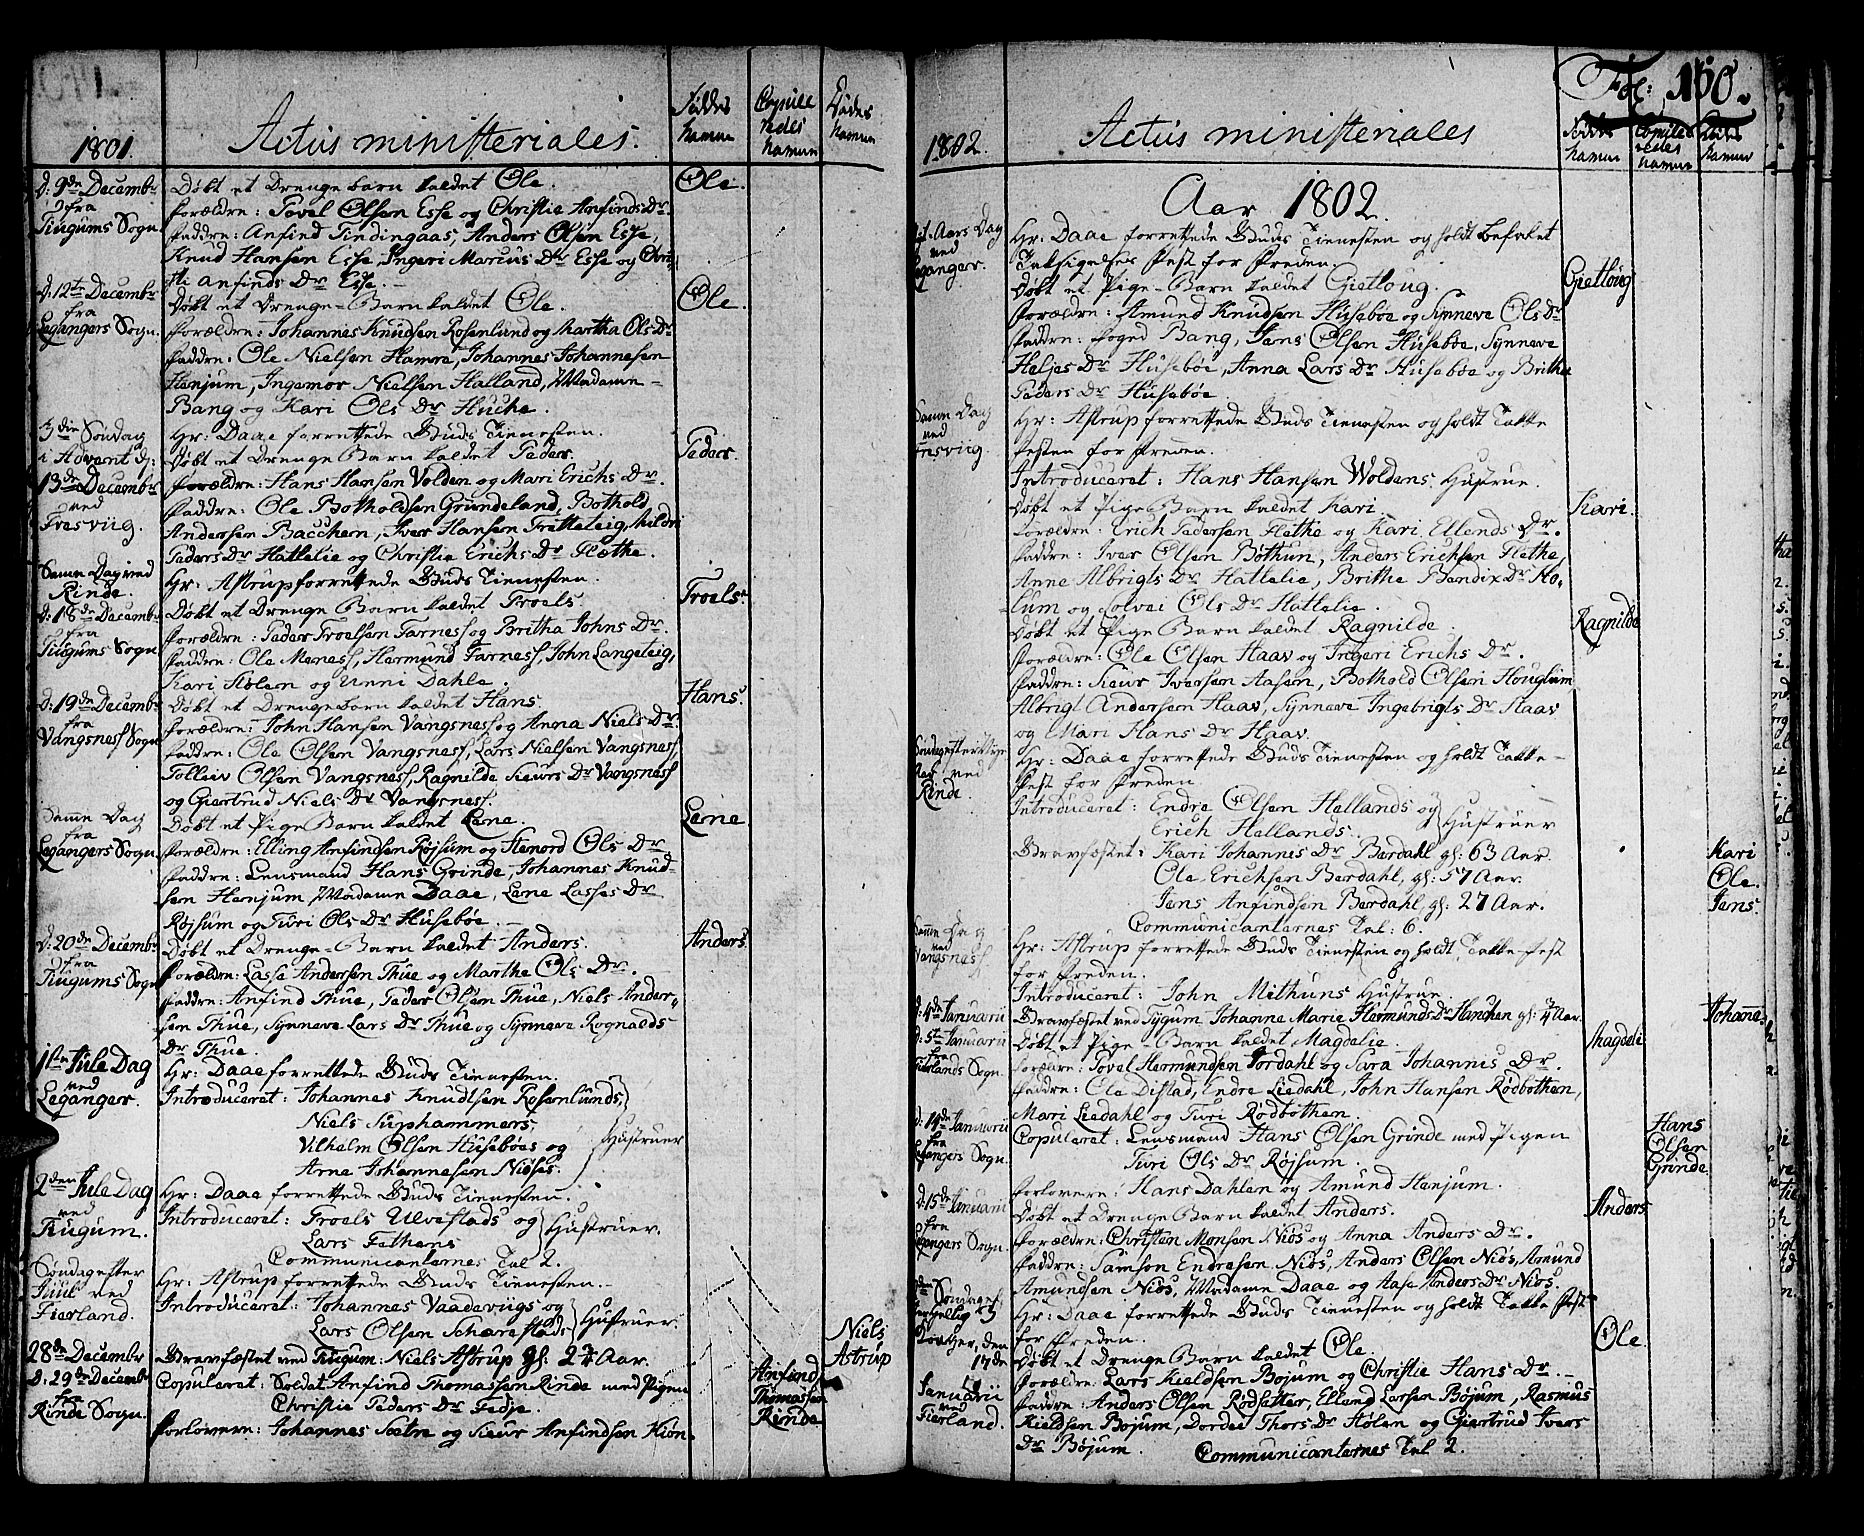 1801.
Actus ministeriales.
Fødde namne
Copule redes namne
Dødes namne
d: 9de Decembr fra Tiugums Sogn
Døbt et Drengebarn kaldet Ole.
Ole.
Forældre: Povel Olsen Esse og Christie Anfinds Dr.
Faddre: Anfind Tindingaas, Anders Olsen Esse,
Knud Hansen Esse, Ingeri Marius Dr Esse og Chri-
sti Anfinds Dr Esse.
d: 12te Decembr fra Legangers Sogn.
Døbt et Drenge-Barn kaldet Ole.
Ole.
Forældre: Johannes Knudsen Rosenlund og Martha Ols Dr
Faddre: Ole Nielsen Hamre, Johannes Johannesen
Henjum, Ingemor Nielsen Halland, Madame
Bang og Kari Ols Dr Huche.
3die Søndag i Advent d: 13de Decembr ved Fresviig.
Hr: Daae forrettede Guds Tienesten.
Døbt et Drenge Barn kaldet Peder.
Peder.
Forældre: Hans Hansen Volden og Mari Erichs Dr.
Faddre: Ole Botholdsen Grundeland, Bothold
Andersen Bacchen, Iver Hansen Tretteteig, Mildri
Peders Dr Hattelie og Christie Erichs Dr Fløthe.
Samme Dag ved Rinde.
Hr: Astrup forrettede Guds Tienesten.
d: 18de Decembr fra Tiugums Sogn
Døbt et Drenge Barn kaldet Troels
Troels.
Forældre: Peder Troelsen Farness og Britha Johns Dr.
Faddre: Ole Meness, Hermund Farness, John Langeteig,
Kari Holen og Unni Dahle.
d: 19de Decembr fra Vangsness Sogn
Døbt et Drengebarn kaldet Hans.
Hans
Forældre: John Hansen Vangsness og Anna Niels Dr
Faddre: Ole Olsen Vangsness, Lars Nielsen Vangsness
Tollev Olsen Vangsness, Ragnilde Sieurs Dr Vangsness
og Giertrud Niels Dr Vangsness.
Samme Dag fra Legangers Sogn.
Døbt et Pige Barn kaldet Lene.
Lene
Forældre: Elling Anfindsen Røjsum og Stenord Ols Dr
Faddre: Lensmand Hans Grinde, Johannes Knud-
sen Henjum, Madame Daae, Lene Lasses Dr
Røjsum og Turi Ols Dr Husebøe.
d: 20de Decembr fra Tiugums Sogn
Døbt et Drenge-Barn kaldet Anders.
Anders
Forældre: Lasse Andersen Thue og Marthe Ols Dr.
Faddre: Anfind Thue, Peder Olsen Thue, Niels Ander-
sen Thue, Synneve Lars Dr Thue og Synneve Rognalds
Dr Thue.
1ste Jule Dag ved Leganger.
Hr: Daae forrettede Guds Tienesten.
Introduceret: Johannes Knudtsen Rosenlunds,
Niels Suphammers,
Vilhelm Olsen Husebøes og
Arne Johannesen Niøses.
Hustruer
2den Jule Dag ved Tiugum.
Hr: Daae forrettede Guds Tienesten.
Introduceret: Troels Ulvestads og
Lars Fethens
Hustruer.
Communicanternes Tal 2.
Søndag efter Juul ved Fierland.
Hr: Astrup forrettede Guds Tienesten.
Introduceret: Johannes Vaadeviigs og
Lars Olsen Scharestads
Hustruer.
28de Decembr
Gravfæstet ved Tiugum: Niels Astrup gl: 24 Aar.
Niels Astrup
d: 29de Decembr fra Rinde Sogn.
Copuleret: Soldat Anfind Thomassen Rinde med Pigen
Christie Peders Dr Fedje.
Anfind Thomassen Rinde
Forlovere: Johannes Sætre og Sieur Anfindsen Kiøn-
1802.
Actus ministeriales
Fol: 150
Fødde namne
Copule redes namne
Døde namne
Aar 1802.
Nyt-Aars Dag ved Leganger.
Hr: Daae forrettede Guds Tienesten og holdt befalet
Taksigelses Fest for Freden.
Døbt et Pige-Barn kaldet Giertloug.
Giertloug
Forældre: Amund Knudsen Husebøe og Synneve Ols Dr
Faddre: Foged Bang, Jens Olsen Husebøe, Synneve
Heljes Dr Husebøe, Anna Lars Dr Husebøe og Brithe
Peders Dr Husebøe.
Samme Dag ved Fresviig
Hr: Astrup forrettede Guds Tienesten og holdt Takke
Festen for Freden.
Introduceret: Hans Hansen Woldens Hustrue.
Døbt et Pige Barn kaldet Kari.
Kari.
Forældre: Erich Pedersen Fløthe og Kari Ellends Dr.
Faddre: Iver Olsen Bøthun, Anders Erichsen Fløthe,
Anne Albrigts Dr Hattelie, Brithe Bendix Dr Ho-
lum og Solvei Ols Dr Hattelie.
Døbt et Pige Barn kaldet Ragnilde.
Ragnilde
Forældre: Ole Olsen Haav og Ingeri Erichs Dr.
Faddre: Sieur Iversen Aasen, Bothold Olsen Houglum
Albrigt Andersen Haav, Synneve Ingebrigts Dr Haav
og Mari Hans Dr Haav.
Søndag efter Nyt Aar ved Rinde.
Hr: Daae forrettede Guds Tienesten og holdt Takke-
Fest for Freden
Introduceret: Endre Olsen Hellands og
Erich Hellands.
Hustruer
Gravfæstet: Kari Johannes Dr Berdahl gl: 63 Aar.
Kari
Ole Erichsen Berdahl, gl: 57 Aar.
Ole.
Jens Anfindsen Berdahl, gl: 27 Aar.
Jens.
Communicanternes Tal: 6.
Samme Dag ved Vangsness
Hr: Astrup forrettede Guds Tienesten og holdt Takke-Fest
for Freden.
Introduceret: John Mithuns Hustrue.
d: 4de Januarii
Gravfæstet ved Tygum Johanne Marie Hermunds Dr Hanchen gl: ¾ Aar.
Johanne
d: 5te Januarii fra Fierlands Sogn.
Døbt et Pige-Barn kaldet Magdelie.
Magdeli
Forældre: Povel Hermundsen Jordahl og Sara Johannis Dr.
Faddre: Ole Distad, Endre Liedahl, John Hansen Rødbothen,
Mari Liedahl og Turi Rødbothen.
d: 14de Januarii fra Legangers Sogn.
Copuleret: Lensmand Hans Olsen Grinde med Pigen
Turi Ols Dr Røjsum.
Hans Olsen Grinde
Forlovere: Hans Dahlen og Amund Henjum.
d: 15de Januarii fra Legangers Sogn.
Døbt et Drenge Barn kaldet Anders.
Anders
Forældre: Christen Monsen Niøs og Anna Anders Dr.
Faddre: Samson Endresen Niøs, Anders Olsen Niøs, Amund
Amundsen Niøs, Madame Daae og Aase Anders Dr Niøs.
Søndag ef. hellig 3 Konger, den 17de Januarii ved Fierland.
Hr: Daae forrettede Guds Tienesten og holdt Takke Fest
for Freden.
Døbt et Drenge Barn kaldet Ole.
Ole
Forældre: Lars Kieldsen Bøjum og Christie Hans Dr.
Faddre: Anders Olsen Rødsetter, Ellend Larsen Bøjum, Rasmus
Kieldsen Bøjum, Dordei Thors Dr Holen og Giertrud Ivers
Dr Bøjum.
Communicanternes Tal 2.